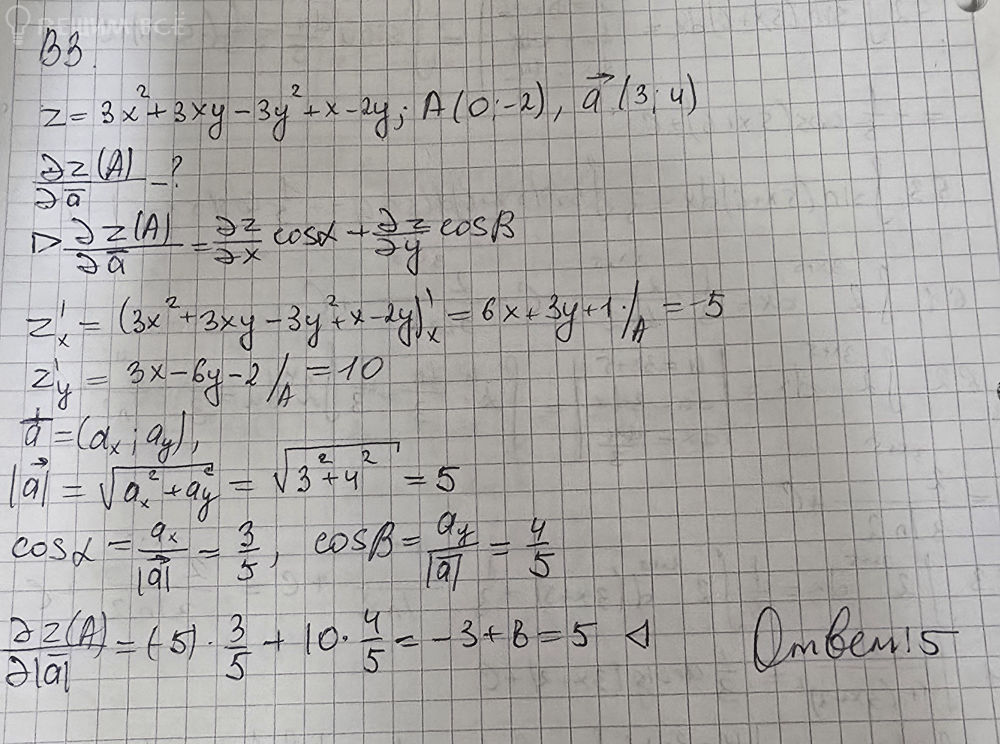 РЕШИМ ВСЁ
В3.
z = 3x² + 3xy − 3y² + x − 2y; A(0; −2), a⃗ (3; 4)
∂z(A)/∂a̅ − ?
▷ ∂z(A)/∂a̅ = ∂z/∂x cosα + ∂z/∂y cosβ
z'ₓ = (3x² + 3xy − 3y² + x − 2y)'ₓ = 6x + 3y + 1 /_A = −5
z'_y = 3x − 6y − 2 /_A = 10
a⃗ = (aₓ; a_y),
|a⃗| = √(aₓ² + a_y²) = √(3² + 4²) = 5
cosα = aₓ/|a⃗| = 3/5, cosβ = a_y/|a̅| = 4/5
∂z(A)/∂|a̅| = (−5) · 3/5 + 10 · 4/5 = −3 + 8 = 5 ◁ Ответ: 5